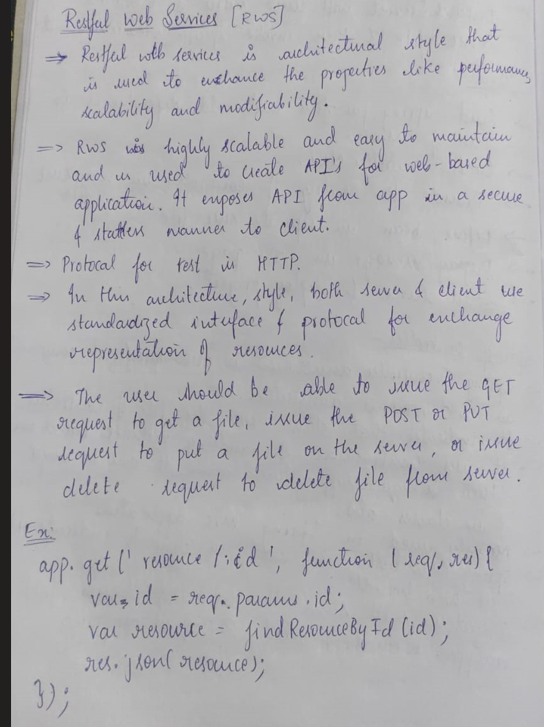 Restful Web Services [RWS]
⇒ Restful web services is architectural style that
is used to enhance the properties like performance,
scalability and modifiability.
⇒ RWS is highly scalable and easy to maintain
and is used to create API's for web-based
application. It exposes API from app in a secure
& statless manner to client.
⇒ Protocal for rest is HTTP.
⇒ In this architecture, style, both server & client use
standardized interface & protocal for exchange
representation of resources.
⇒ The user should be able to issue the GET
request to get a file, issue the POST or PUT
request to put a file on the server, or issue
delete request to delete file from server.
Ex:
app.get(' resource /:id ', function (req, res){
var id = req.params.id;
var resource = findResourceById(id);
res.json(resource);
});